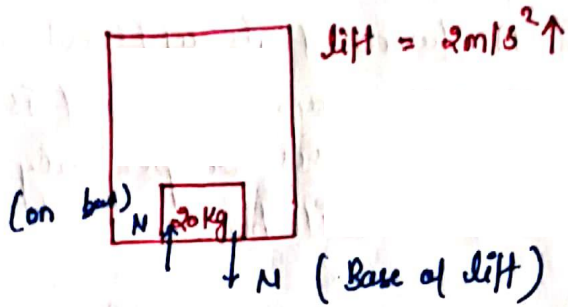 lift = 2m/s² ↑
(on box) N
20 kg
N (Base of lift)